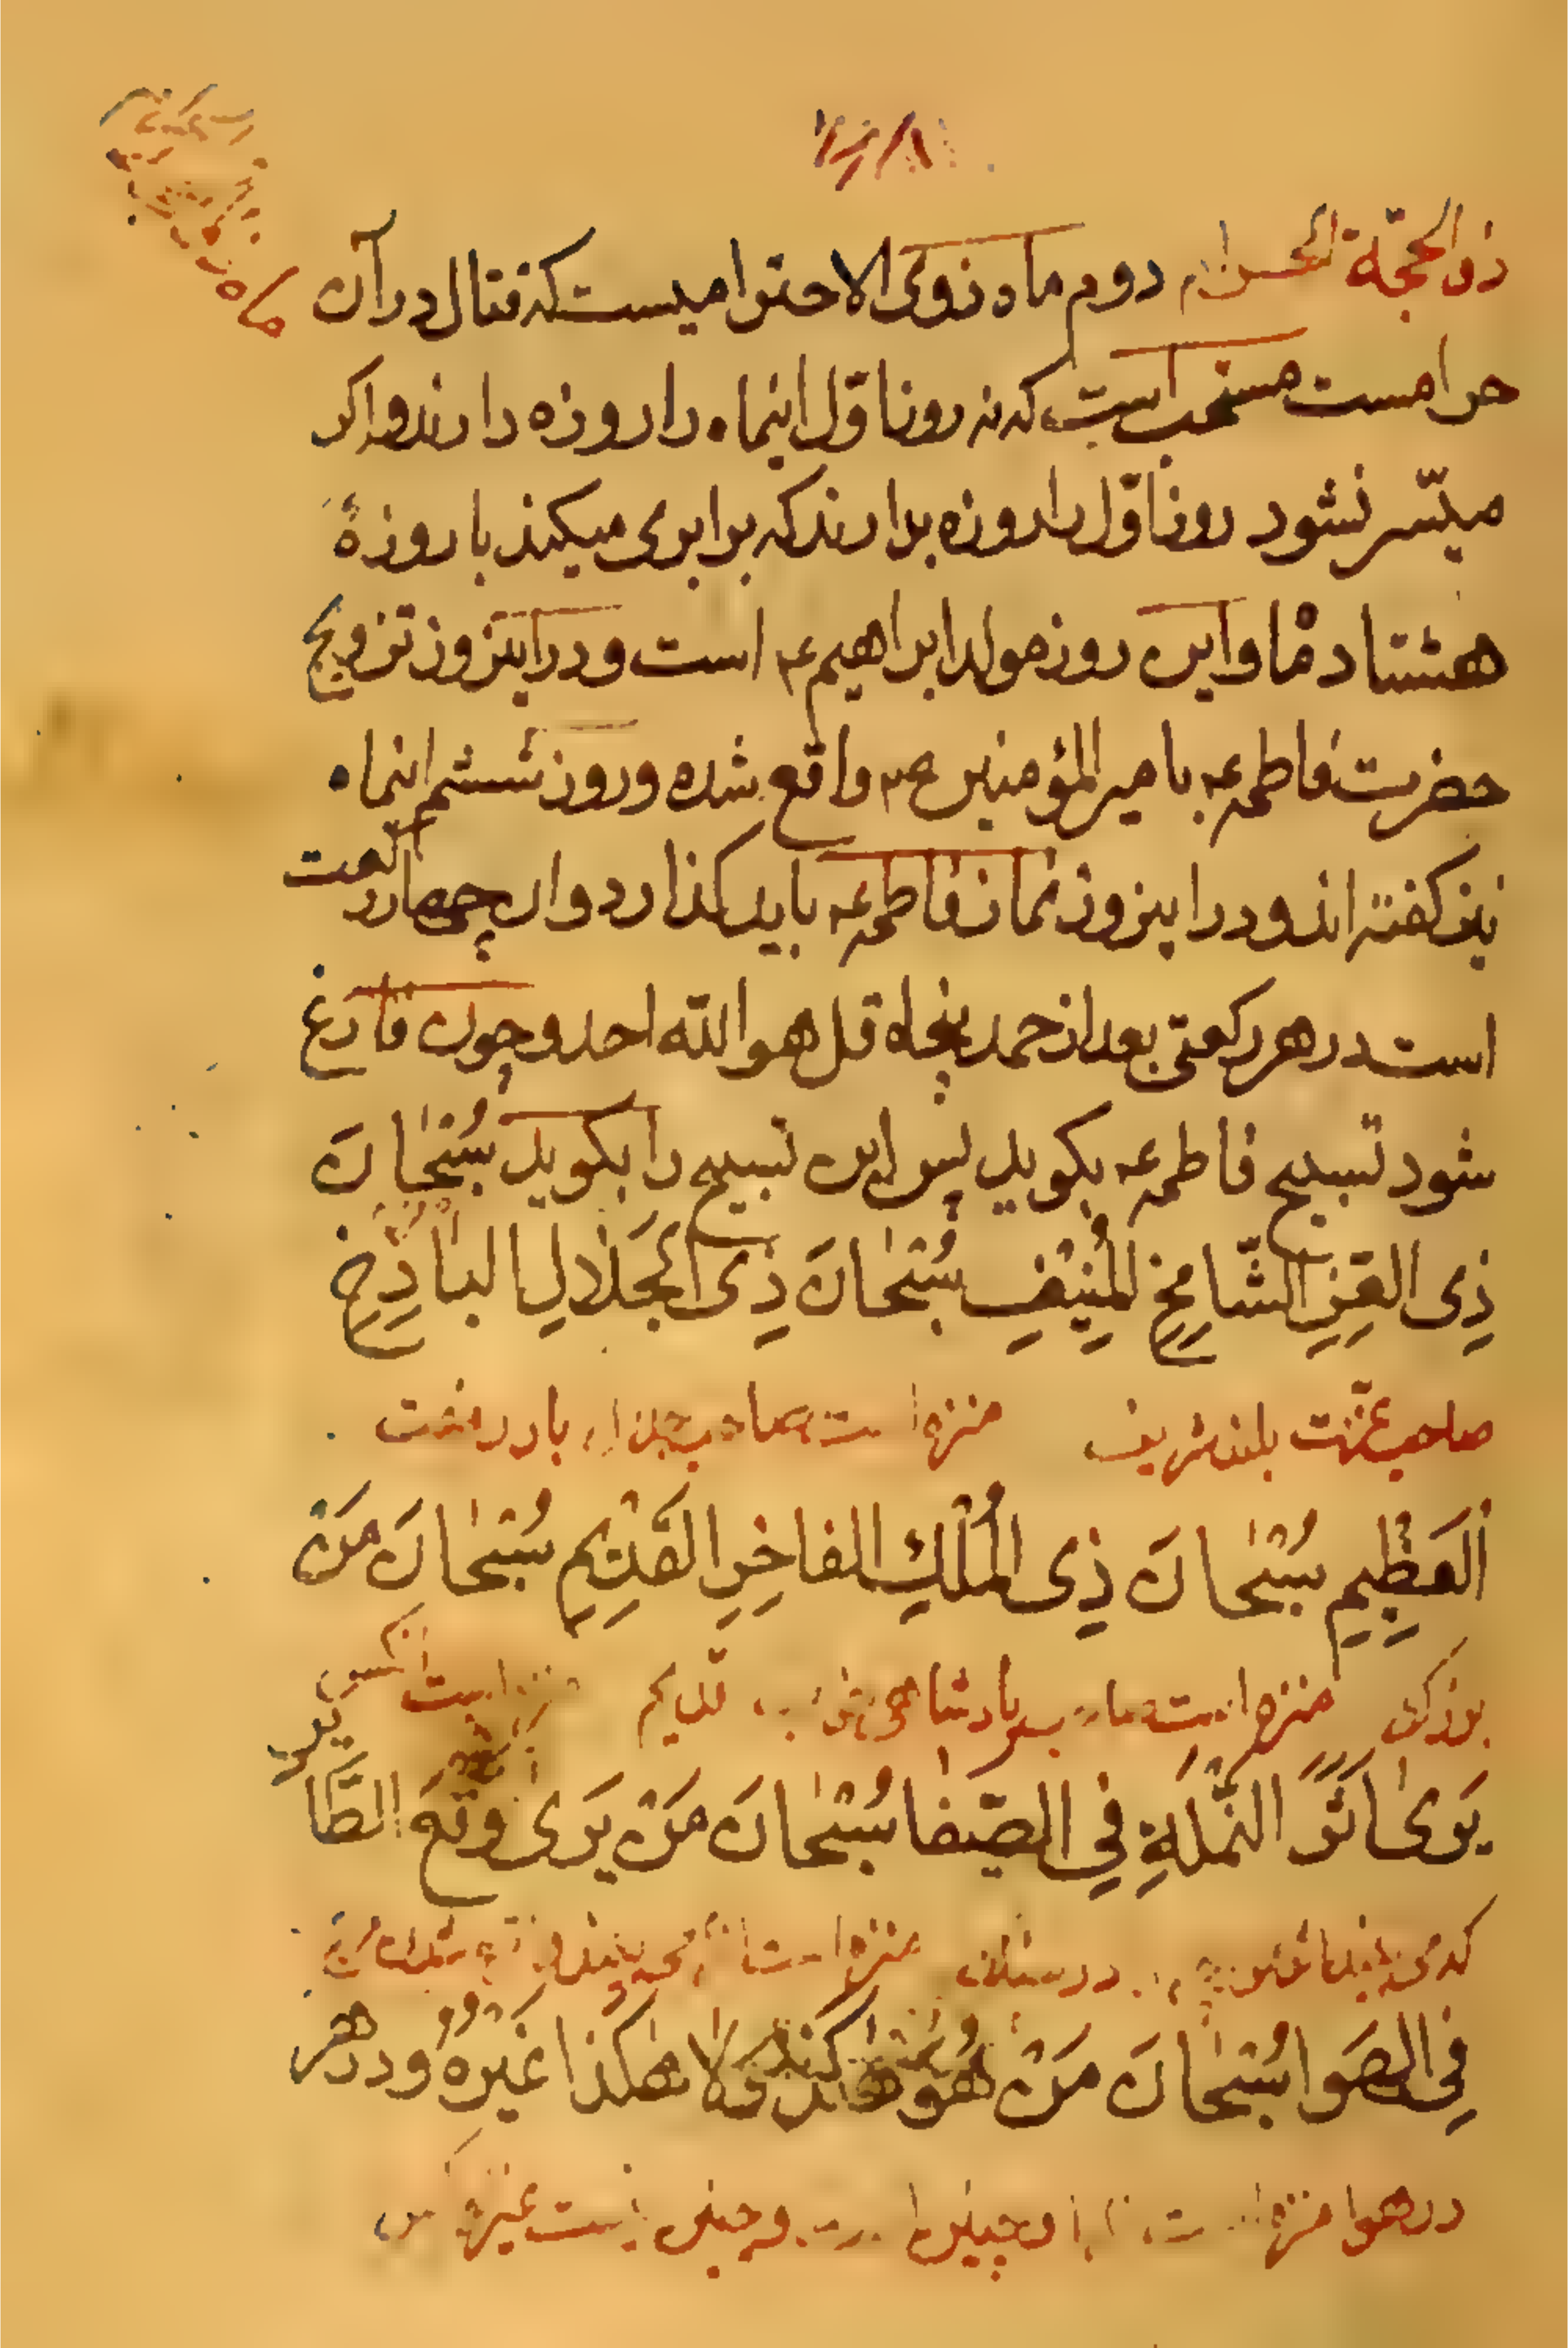 ماه
ذی الحجّة الحرام دوم ماه ذوی الاحترامیست که قتال در آن
حرامست مستحب است که نه روز اوّل اینماه را روزه دارند و اکر
میسّر نشود روز اوّل را روزه بدارند که برابری میکند با روزهٔ
هشتاد ماه و این روز مولد ابراهیم ع است و در اینروز تزویج
حضرت فاطمه ع با میر المؤمنین ع واقع شده و روز ششم اینماه
نیز کفته اند و در اینروز نماز فاطمه ع باید کذارد و ان چهار رکعت
است در هر رکعتی بعد از حمد پنجاه قل هو الله احد و چون فارغ
شود تسبیح فاطمه ع بکوید پس این تسبیح را بکوید سُبْحٰانَ
ذِی العِزِّ الشّامِخِ المُنِیْفِ سُبْحٰانَ ذِی الجَلالِ الباذِخِ
صاحب عزّت بلند شریف منزه است صاحب جلال با رفعت
العَظِیمِ سُبْحٰانَ ذِی المُلْكِ الفاخِرِ القَدِیْمِ سُبْحٰانَ مَنْ
بزرک منزه است صاحب پادشاهی قدیم منزه است انکس
یَرىٰ اَثَرَ النَّمْلَةِ فِی الصَّفا سُبْحٰانَ مَنْ یَرىٰ وَقْعَ الطَّیْرِ
که می بیند در سنک منزه است
فِی الهَوا سُبْحٰانَ مَنْ هُوَ هٰکذا وَ لا هٰکذا غَیْرُهُ و در هر
در هوا منزه است چنین است و چنین نیست غیر